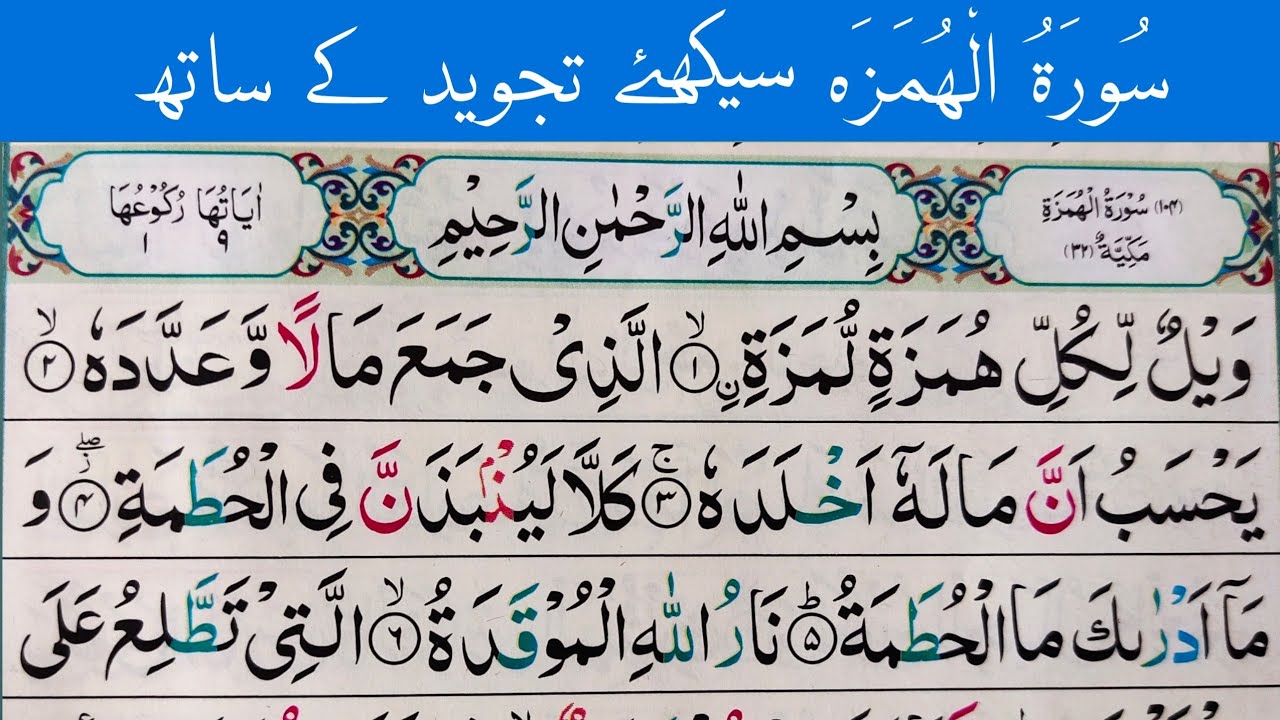 سُورَةُ الْهُمَزَه سیکھئے تجوید کے ساتھ
(۱۰۴) سُوْرَةُ الْهُمَزَةِ
مَكِّيَّةٌ (۳۲)
بِسْمِ اللّٰهِ الرَّحْمٰنِ الرَّحِيْمِ
اٰيَاتُهَا رُكُوْعُهَا
۹ ۱
وَيْلٌ لِّكُلِّ هُمَزَةٍ لُّمَزَةِ ۙ۝۱ نِ الَّذِيْ جَمَعَ مَالًا وَّعَدَّدَهٗ ۙ۝۲
يَحْسَبُ اَنَّ مَالَهٗٓ اَخْلَدَهٗ ۚ۝۳ كَلَّا لَيُنْۢبَذَنَّ فِي الْحُطَمَةِ ۖ۝۴ وَ
مَآ اَدْرٰىكَ مَا الْحُطَمَةُ ؕ۝۵ نَارُ اللّٰهِ الْمُوْقَدَةُ ۙ۝۶ الَّتِيْ تَطَّلِعُ عَلَى